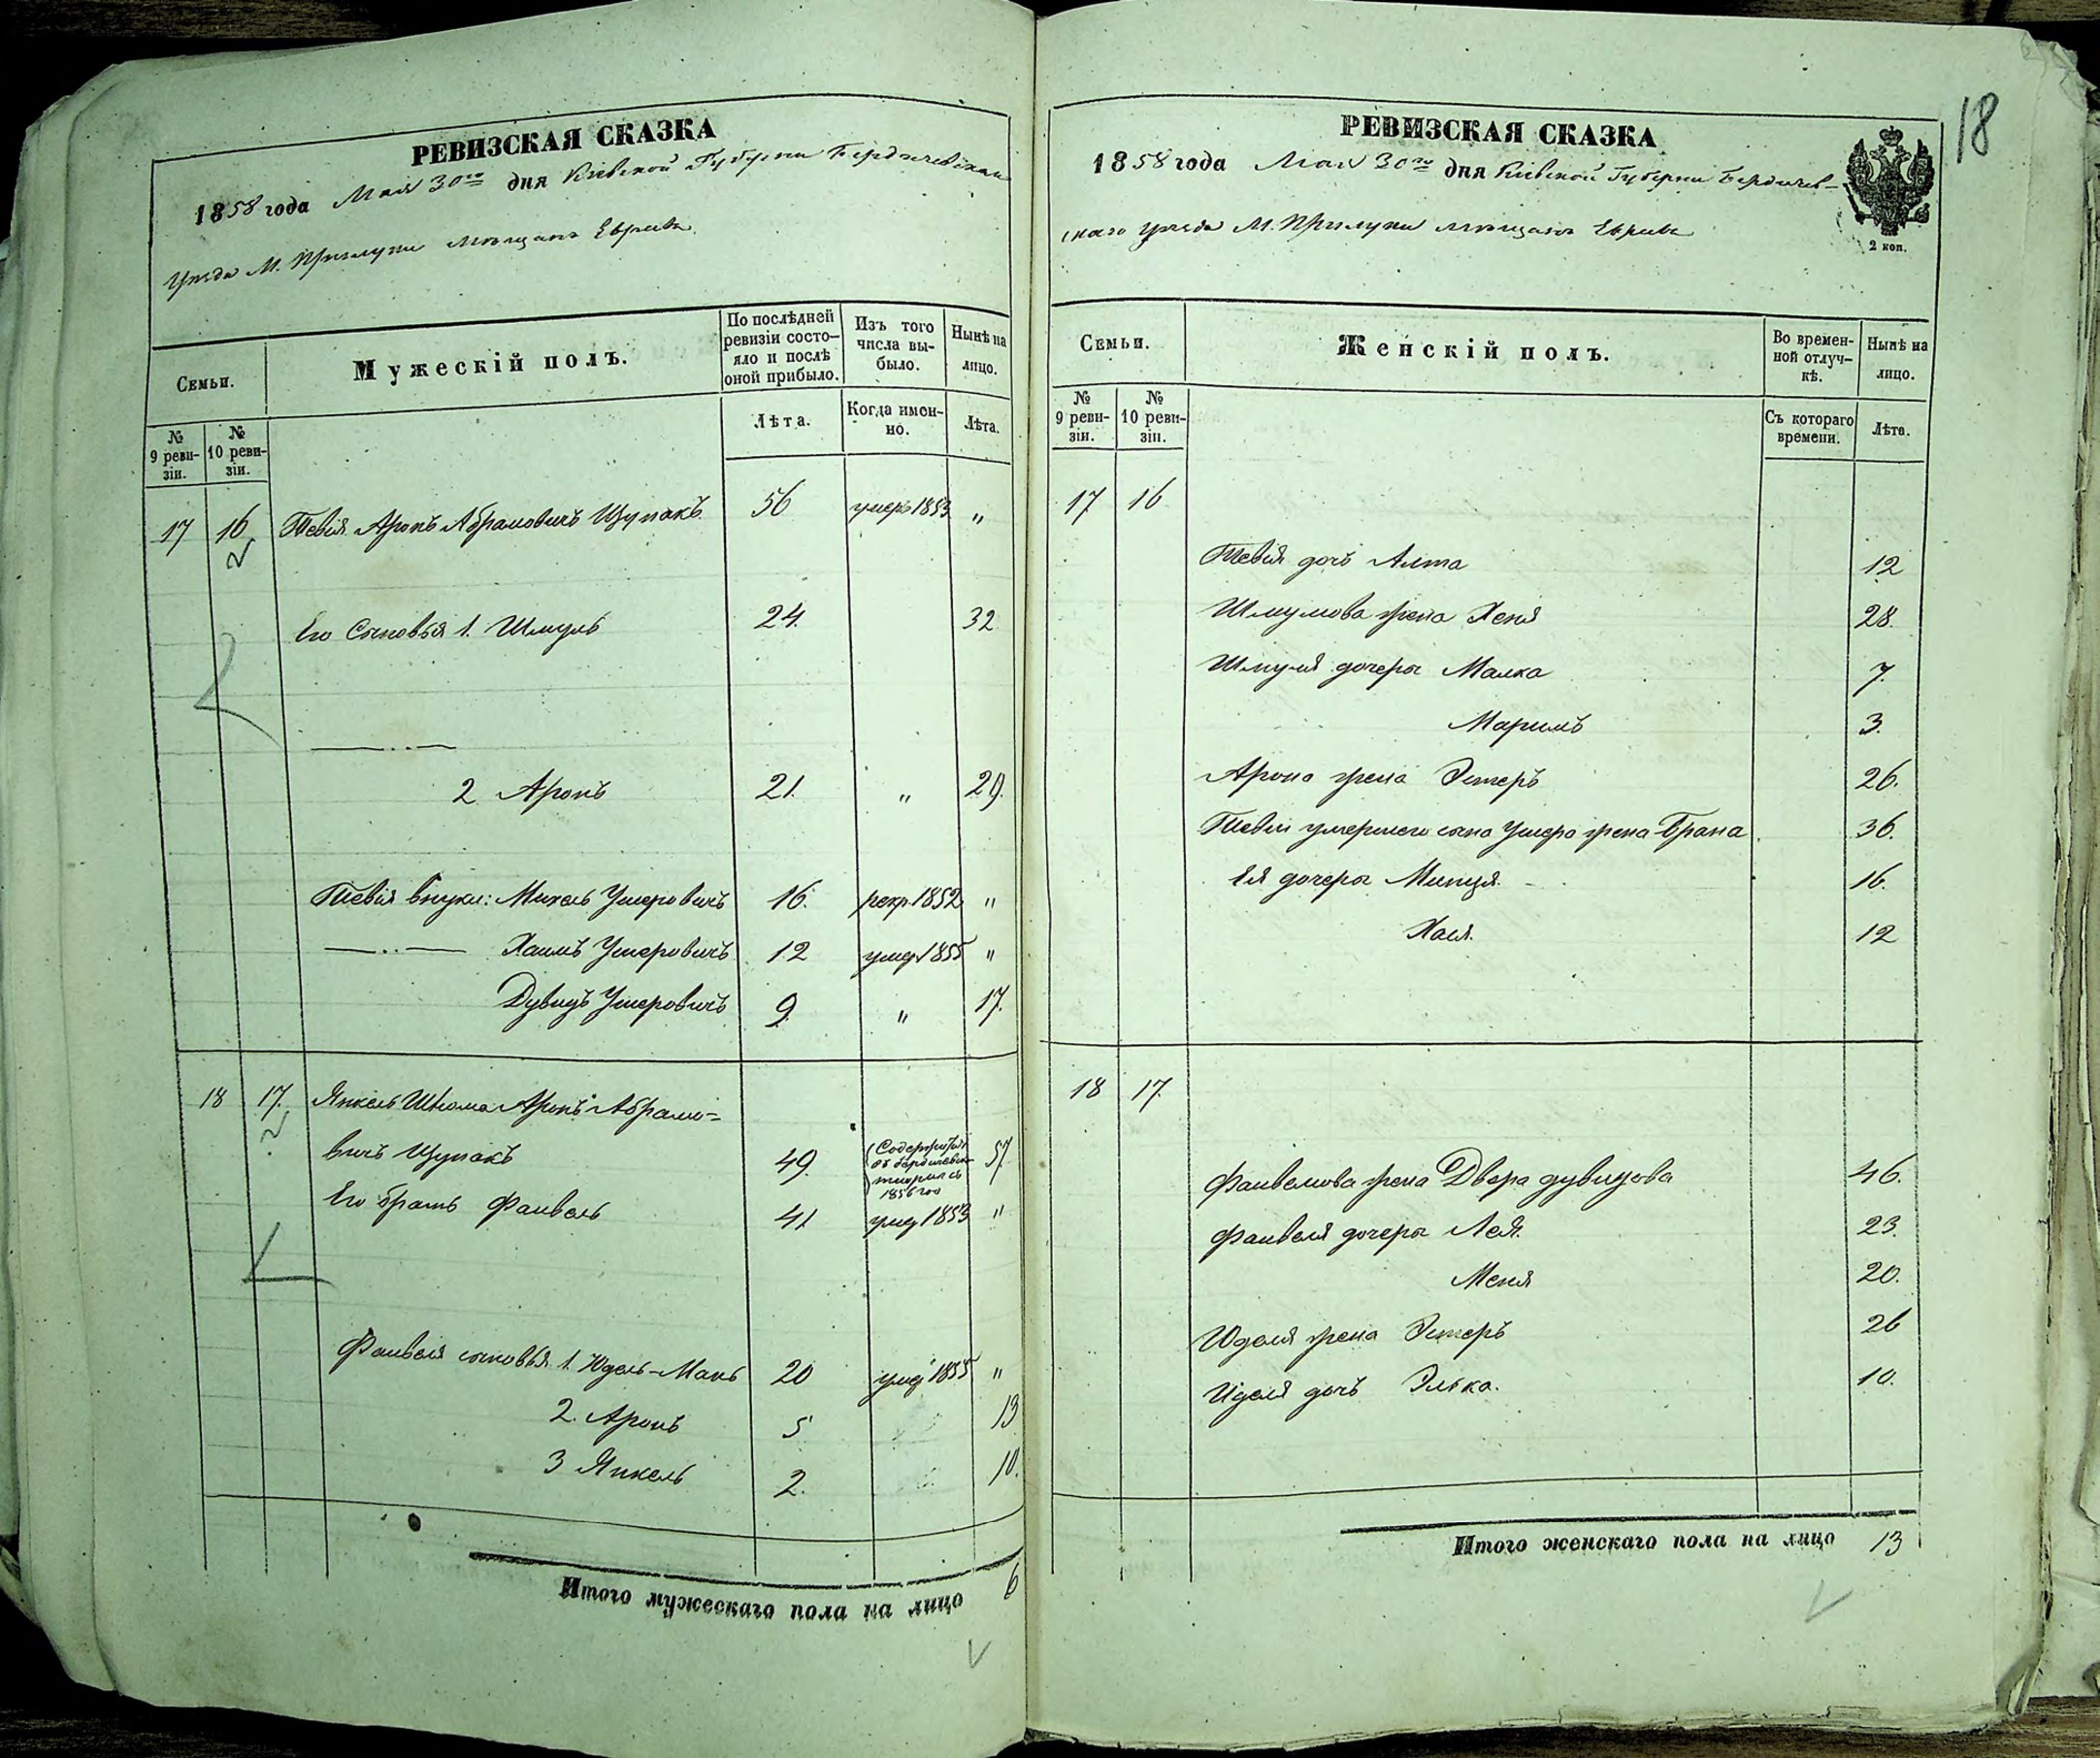 РЕВИЗСКАЯ СКАЗКА
1858 года Мая 30го дня Кіевской Губерніи Бердичевскаго
Уѣзда М. Прилуки мѣщанъ Евреевъ
Семьи.
Мужескій полъ.
По послѣдней ревизіи состо-
яло и послѣ оной прибыло.
Изъ того числа вы-
было.
Нынѣ на лицо.
№ 9 реви-
зіи.
№ 10 реви-
зіи.
Лѣта.
Когда имен-
но.
Лѣта.
17 16 Тевія Аронъ Абрамовичъ Щупакъ 56 умеръ 1853 "
Его Сыновья 1. Шмуль 24. 32
—··—
2 Аронъ 21. " 29.
Тевія внуки: Михель Ушеровичъ 16. рекр. 1852 "
—··— Хаимъ Ушеровичъ 12 умер 1855 "
Дувидъ Ушеровичъ 9. " 17.
18 17. Янкель Шлома Аронъ Абрамо-
вичъ Щупакъ 49. Содержится
въ бердичевск.
тюрмѣ съ
1856 год 57
Его братъ Фаивель 41 умер 1853 "
Фаивеля сыновья 1. Юдель-Мань 20 умер 1855 "
2. Аронъ 5 13
3 Янкель 2. 10.
Итого мужескаго пола на лицо 6
18
РЕВИЗСКАЯ СКАЗКА
1858 года Мая 30го дня Кіевской Губерніи Бердичев-
скаго уѣзда М. Прилуки мѣщанъ Евреевъ
2 коп.
Семьи.
Женскій полъ.
Во времен-
ной отлуч-
кѣ.
Нынѣ на лицо.
№ 9 реви-
зіи.
№ 10 реви-
зіи.
Съ котораго времени.
Лѣта.
17 16
Тевія дочь Алта 12
Шмулова жена Хеня 28.
Шмуля дочери Малка 7.
Маримъ 3.
Арона жена Эстеръ 26.
Тевіи умершего сына Ушера жена Брана 36.
Ея дочери Минця 16.
Хася. 12
18 17.
Фаивелова жена Двера дувидова 46.
Фаивеля дочери Лея. 23.
Меня 20.
Юделя жена Эстеръ 26
Иделя дочь Элька. 10.
Итого женскаго пола на лицо 13